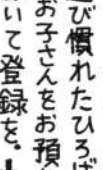 び慣れたひろば
お子さんをお預
いて登録を。